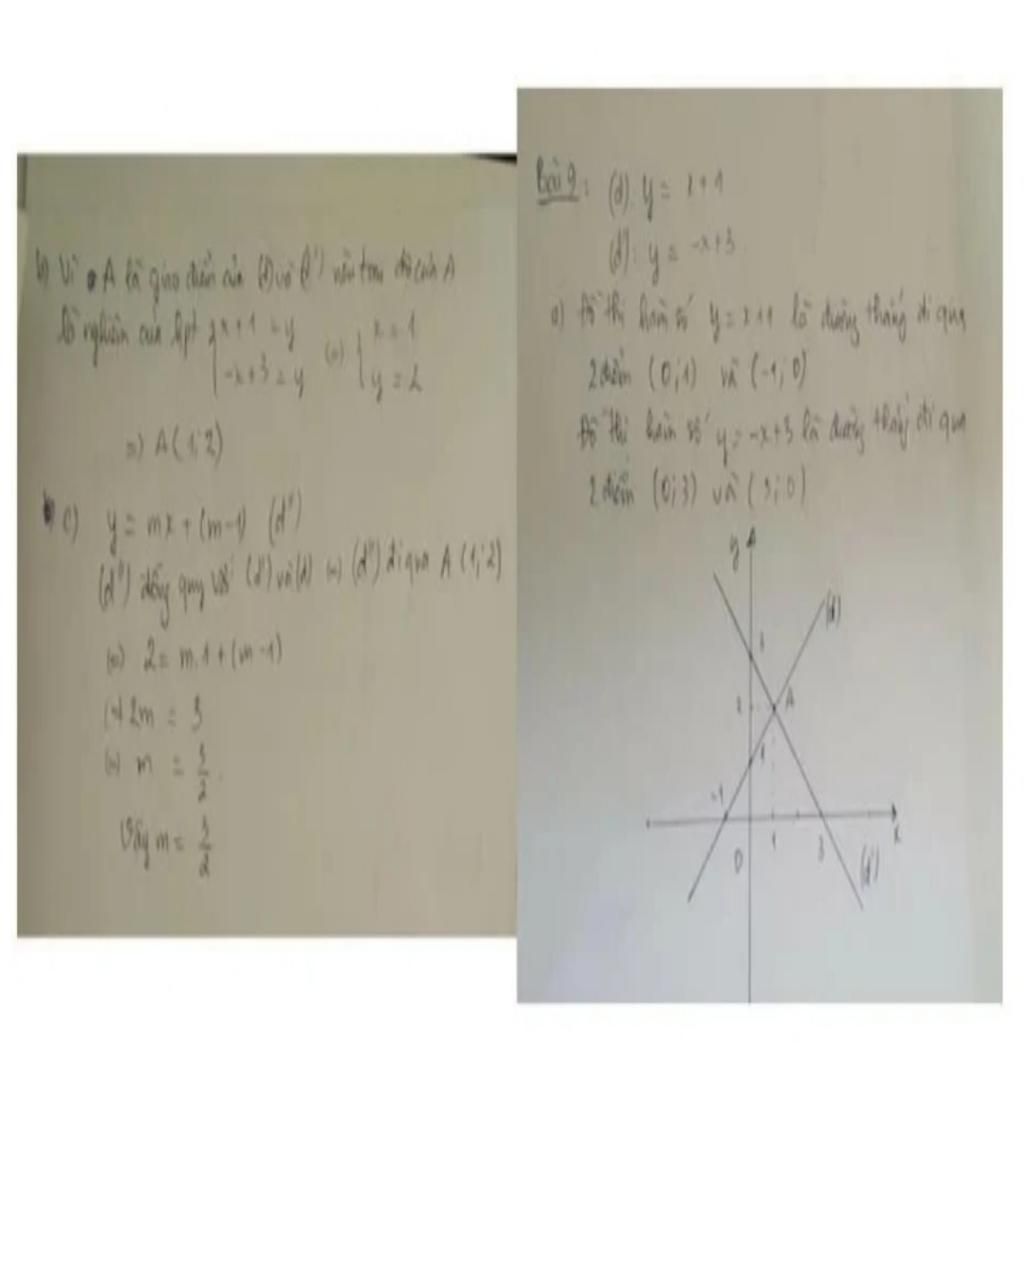 Bài 9: (d): y = x+1
(d'): y = -x+3
a) Đồ thị hàm số y = x+1 là đường thẳng đi qua
2 điểm (0;1) và (-1;0)
Đồ thị hàm số y = -x+3 là đường thẳng đi qua
2 điểm (0;3) và (3;0)
y
(d)
3
2
A
1
-1
0
1
3
x
(d')
b) Vì A là giao điểm của (d) và (d') nên toạ độ của A
là nghiệm của hpt { x+1 = y (=) { x = 1
-x+3 = y y = 2
=) A(1;2)
c) y = mx + (m-1) (d")
(d") đồng quy với (d') và (d) (=) (d") đi qua A (1;2)
(=) 2 = m.1 + (m-1)
(=) 2m = 3
(=) m = 3/2.
Vậy m = 3/2